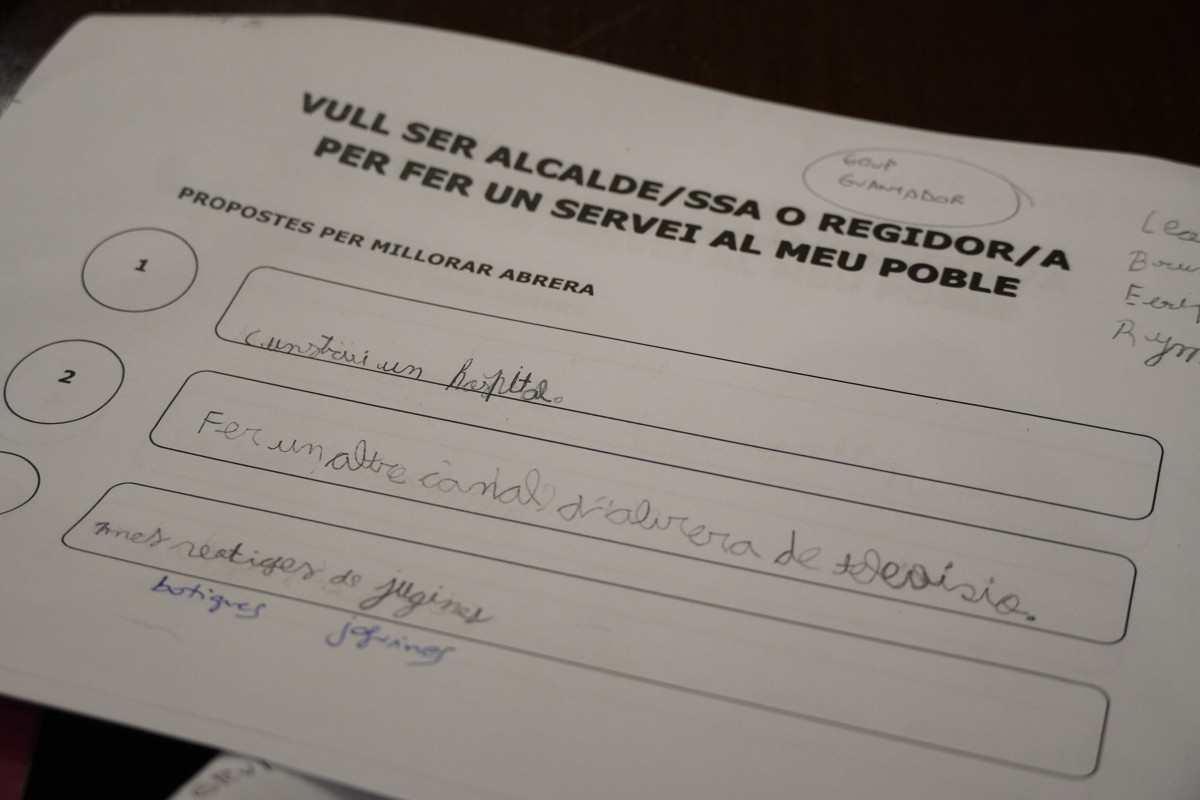 GRUP
GUANYADOR
VULL SER ALCALDE/SSA O REGIDOR/A
PER FER UN SERVEI AL MEU POBLE
PROPOSTES PER MILLORAR ABRERA
1
cunstrui un hospital.
2
Fer un altre canal d'abrera de televisio.
mes de jugines
botigues joguines